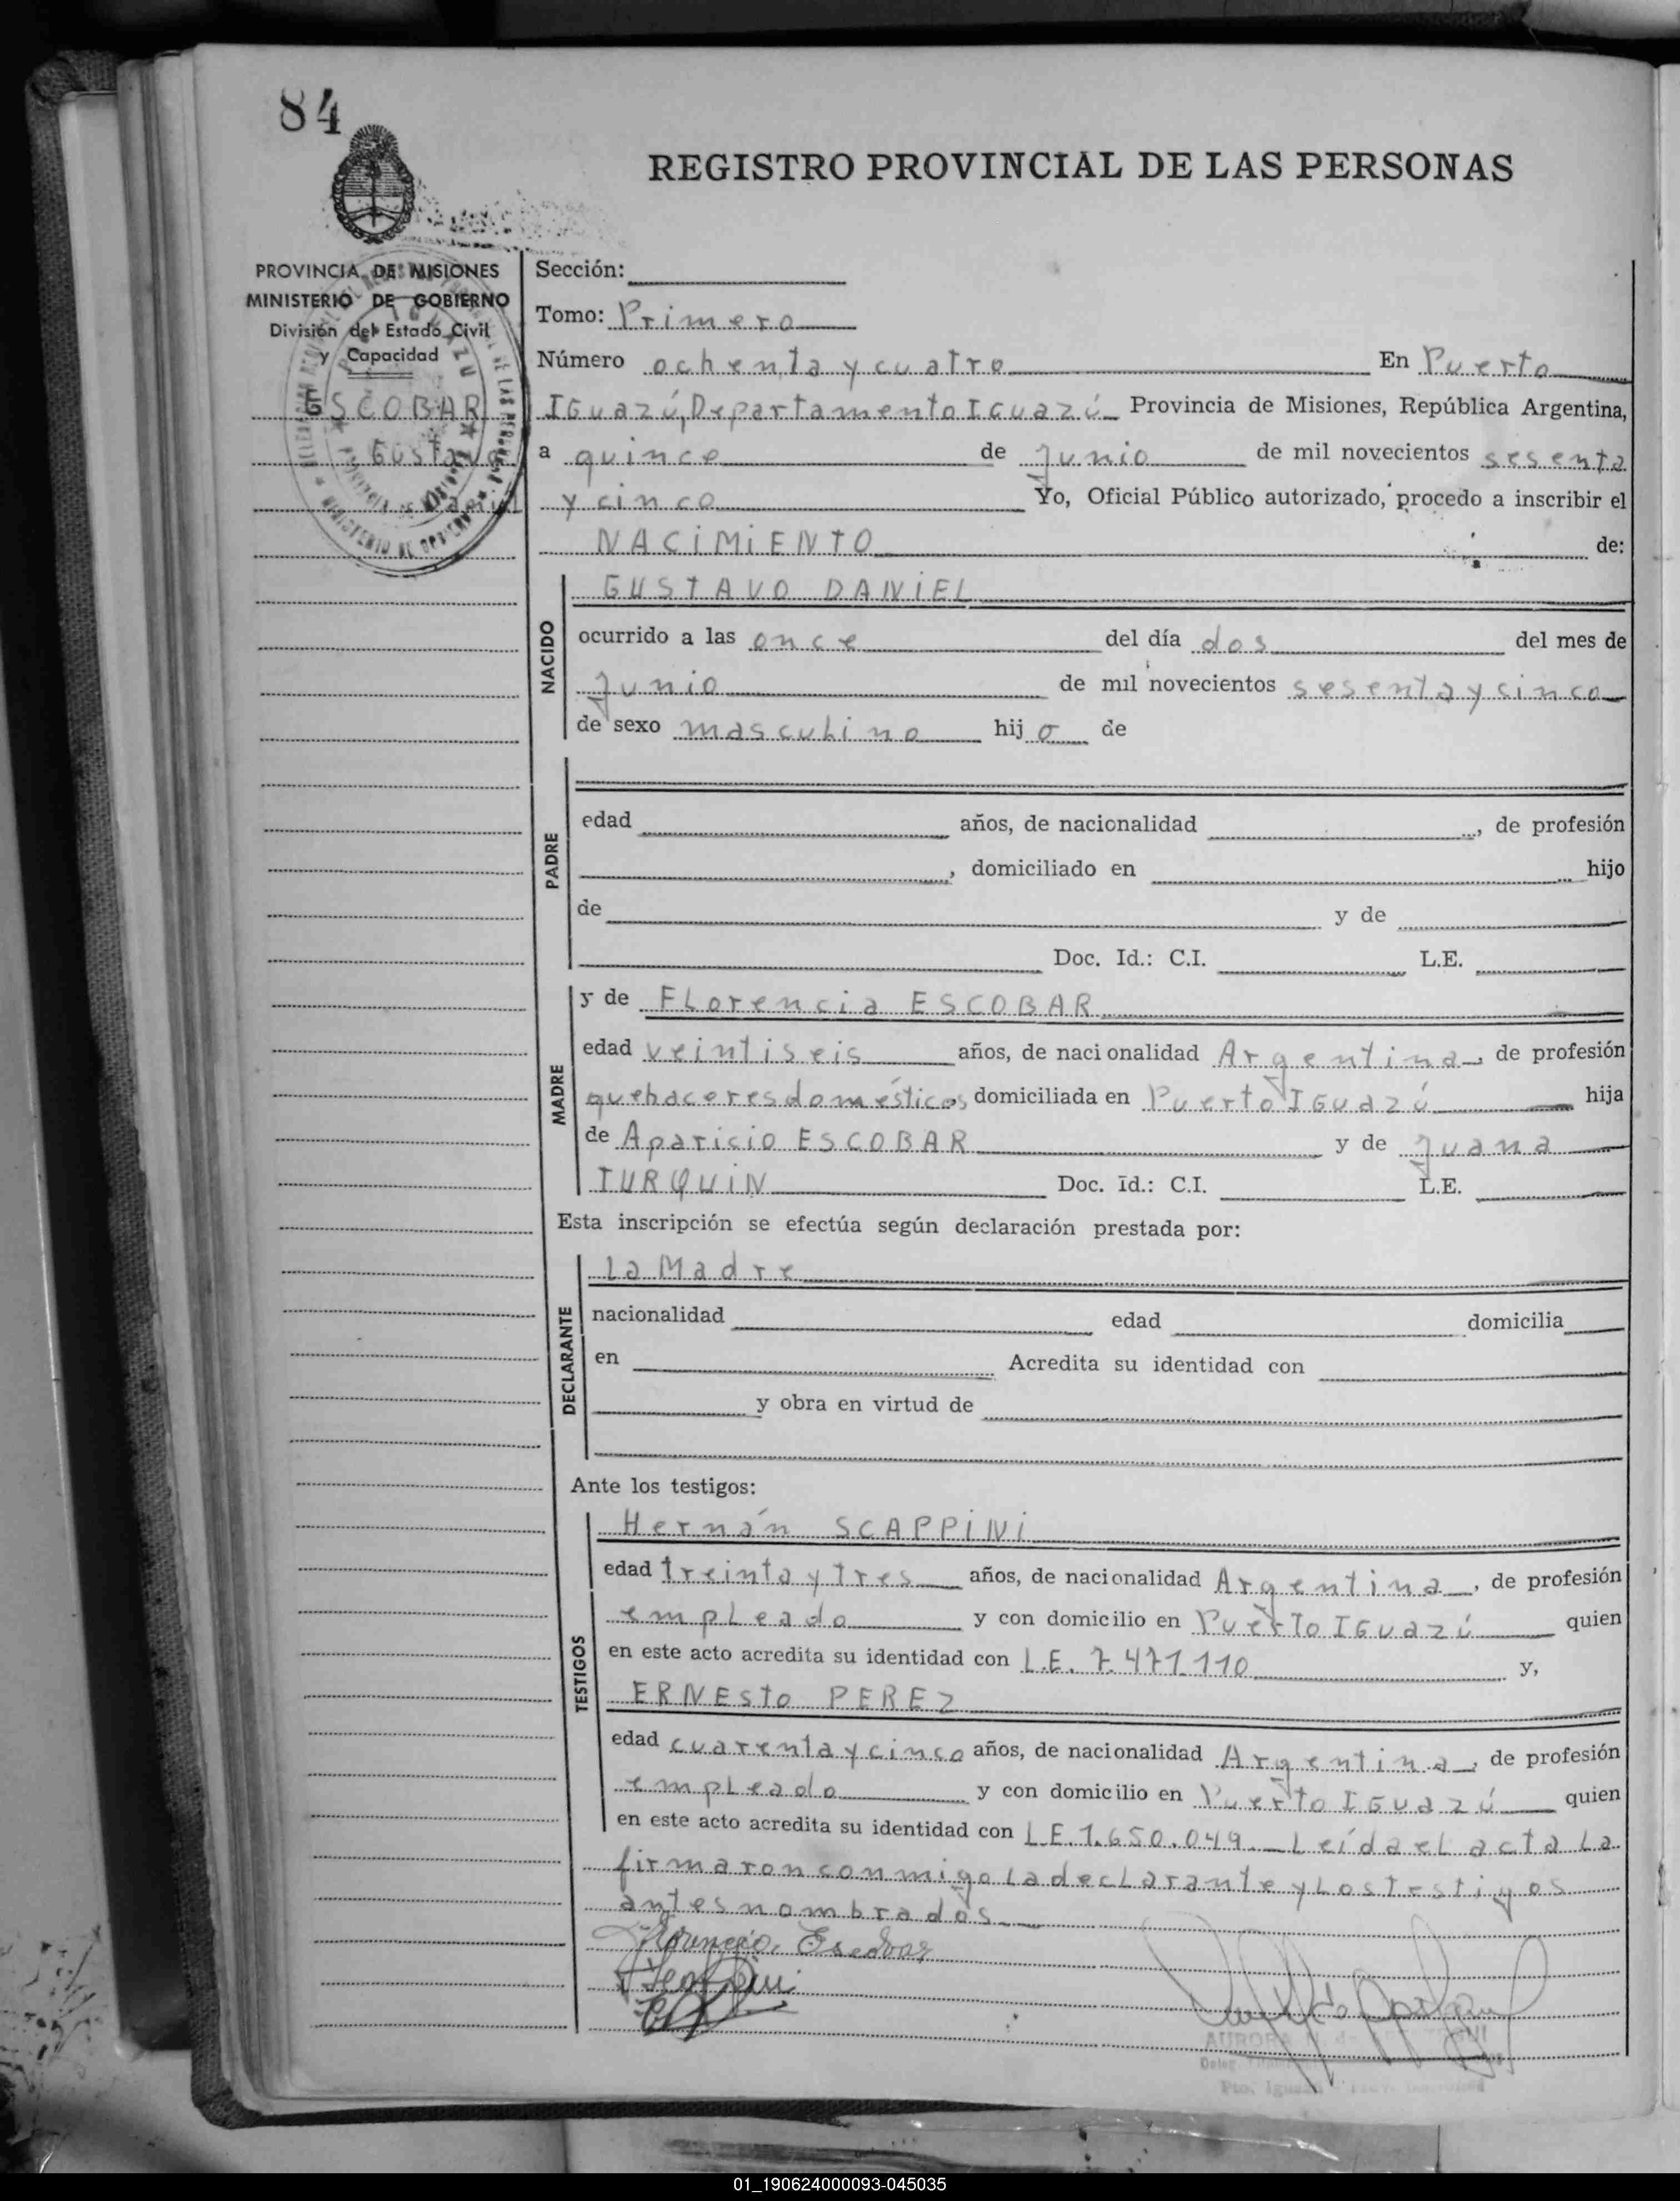 84
REGISTRO PROVINCIAL DE LAS PERSONAS
PROVINCIA DE MISIONES
MINISTERIO DE GOBIERNO
División del Estado Civil
y Capacidad
ESCOBAR
Gustavo
Daniel
Sección:
Tomo: Primero
Número ochenta y cuatro En Puerto
Iguazú, Departamento Iguazú Provincia de Misiones, República Argentina,
a quince de junio de mil novecientos sesenta
y cinco Yo, Oficial Público autorizado, procedo a inscribir el
NACIMIENTO de:
NACIDO
GUSTAVO DANIEL
ocurrido a las once del día dos del mes de
junio de mil novecientos sesenta y cinco
de sexo masculino hijo de
PADRE
edad años, de nacionalidad , de profesión
, domiciliado en hijo
de y de
Doc. Id.: C.I. L.E.
MADRE
y de Florencia ESCOBAR
edad veintiseis años, de nacionalidad Argentina, de profesión
quehaceres domésticos domiciliada en Puerto Iguazú hija
de Aparicio ESCOBAR y de Juana
TURQUIN Doc. Id.: C.I. L.E.
Esta inscripción se efectúa según declaración prestada por:
DECLARANTE
La Madre
nacionalidad edad domicilia
en Acredita su identidad con
y obra en virtud de
Ante los testigos:
TESTIGOS
Hernán SCAPPINI
edad treinta y tres años, de nacionalidad Argentina, de profesión
empleado y con domicilio en Puerto Iguazú quien
en este acto acredita su identidad con L.E. 7.471.110 y,
ERNESTO PEREZ
edad cuarenta y cinco años, de nacionalidad Argentina, de profesión
empleado y con domicilio en Puerto Iguazú quien
en este acto acredita su identidad con L.E. 1.650.049. Leída el acta la
firmaron conmigo la declarante y los testigos
antes nombrados.
Florencia Escobar
AURORA
01_190624000093-045035